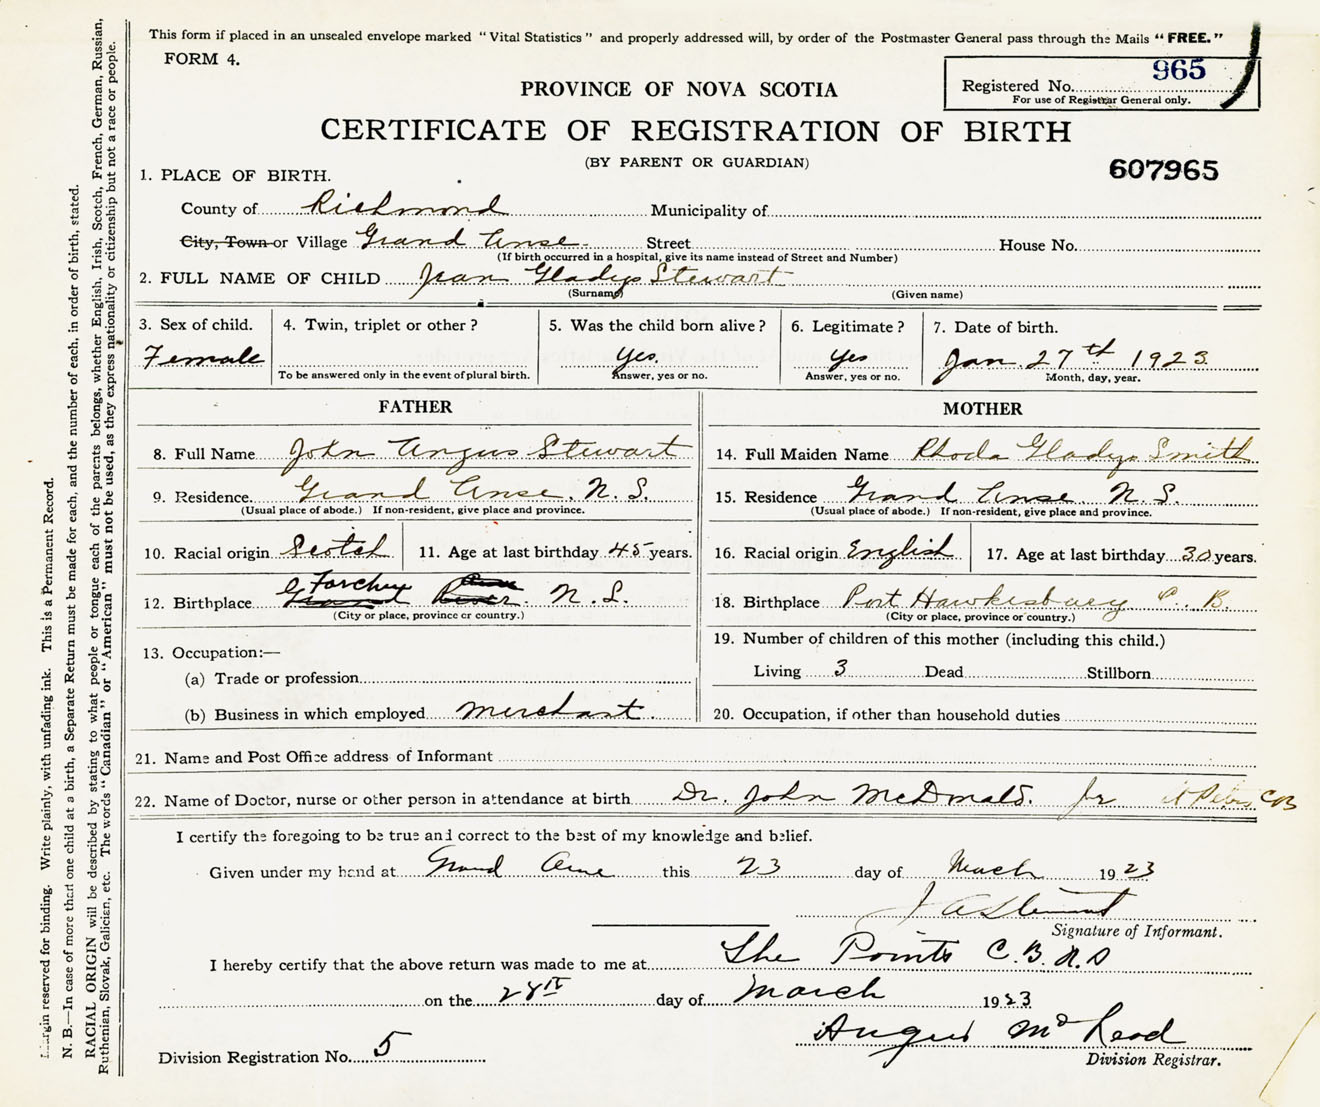 This form if placed in an unsealed envelope marked "Vital Statistics" and properly addressed will, by order of the Postmaster General pass through the Mails "FREE."
FORM 4.
965
Registered No.
For use of Registrar General only.
PROVINCE OF NOVA SCOTIA
CERTIFICATE OF REGISTRATION OF BIRTH
(BY PARENT OR GUARDIAN)
607965
1. PLACE OF BIRTH.
County of Richmond Municipality of
City, Town or Village Grand Anse Street House No.
(If birth occurred in a hospital, give its name instead of Street and Number)
2. FULL NAME OF CHILD Jean Gladys Stewart
(Surname) (Given name)
3. Sex of child. 4. Twin, triplet or other? 5. Was the child born alive? 6. Legitimate? 7. Date of birth.
Female Yes. Yes Jan. 27th 1923
To be answered only in the event of plural birth. Answer, yes or no. Answer, yes or no. Month, day, year.
FATHER MOTHER
8. Full Name John Angus Stewart 14. Full Maiden Name Rhoda Gladys Smith
9. Residence. Grand Anse. N. S. 15. Residence Grand Anse N. S.
(Usual place of abode.) If non-resident, give place and province. (Usual place of abode.) If non-resident, give place and province.
10. Racial origin Scotch 11. Age at last birthday 45 years. 16. Racial origin English 17. Age at last birthday 30 years.
12. Birthplace Grand River N. S. 18. Birthplace Port Hawkesbury C. B.
(City or place, province or country.) (City or place, province or country.)
19. Number of children of this mother (including this child.)
13. Occupation:—
(a) Trade or profession Living 3 Dead Stillborn
(b) Business in which employed Merchant. 20. Occupation, if other than household duties
21. Name and Post Office address of Informant
22. Name of Doctor, nurse or other person in attendance at birth Dr. John McDonald. Jr St Peters CB
I certify the foregoing to be true and correct to the best of my knowledge and belief.
Given under my hand at Grand Anse this 23 day of March 1923
J A Stewart
Signature of Informant.
I hereby certify that the above return was made to me at The Points C. B.
on the 28th day of March 1923
Angus McLeod
Division Registration No. 5 Division Registrar.
Margin reserved for binding. Write plainly, with unfading ink. This is a Permanent Record.
N. B.—In case of more than one child at a birth, a Separate Return must be made for each, and the number of each, in order of birth, stated.
RACIAL ORIGIN will be described by stating to what people or tongue each of the parents belongs, whether English, Irish, Scotch, French, German, Russian,
Ruthenian, Slovak, Galician, etc. The words "Canadian" or "American" must not be used, as they express nationality or citizenship but not a race or people.